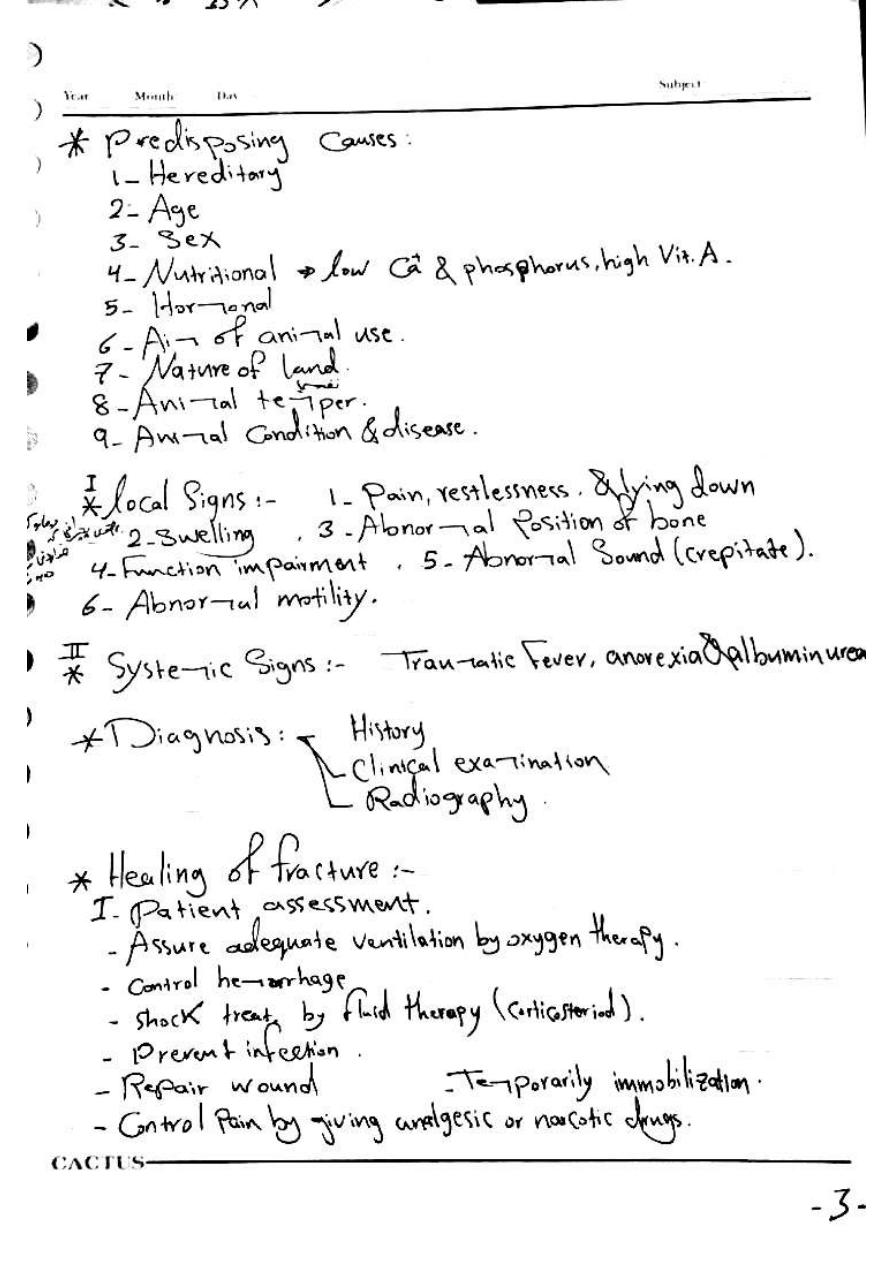 Year Month Day Subject
* Predisposing Causes:
1- Hereditary
2- Age
3- Sex
4- Nutritional → low Ca & phosphorus, high Vit. A.
5- Hormonal
6- Aim of animal use.
7- Nature of land.
8- Animal temper.
9- Animal Condition & disease.
I
* local Signs :- 1- Pain, restlessness. & lying down
2- Swelling . 3- Abnormal Position of bone
4- Function impairment . 5- Abnormal Sound (crepitate).
6- Abnormal motility.
II
* Systemic Signs :- Traumatic Fever, anorexia & albuminurea
* Diagnosis: History
Clinical examination
Radiography.
* Healing of fracture :-
I- Patient assessment.
- Assure adequate ventilation by oxygen therapy.
- Control hemorrhage
- Shock treat. by fluid therapy (Corticosteriod).
- Prevent infection.
- Repair wound - Temporarily immobilization.
- Control Pain by giving analgesic or narcotic drugs.
CACTUS
-3-